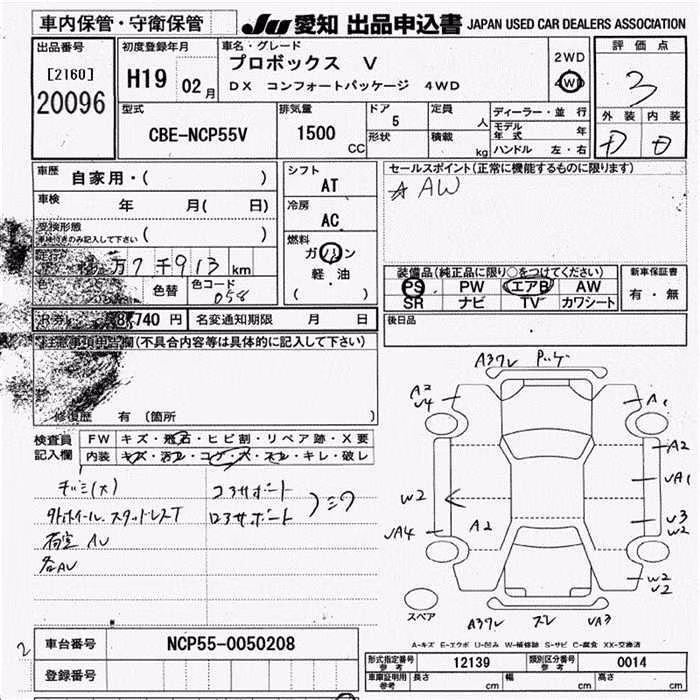 車内保管・守衛保管
JU 愛知 出品申込書 JAPAN USED CAR DEALERS ASSOCIATION
出品番号
[2160]
20096
初度登録年月
H19 02月
車名・グレード
プロボックス V
DX コンフォートパッケージ 4WD
2WD
4WD
評価点
3
外装 内装
D D
型式
CBE-NCP55V
排気量
1500 CC
ドア
5
形状
定員
人
積載
kg
ディーラー・並行
モデル年式 年
ハンドル 左・右
車歴 自家用・( )
車検 年 月( 日)
受検形態
車検付きのみ記入して下さい ( )
万7千913km
色替
色コード
058
シフト
AT
冷房
AC
燃料
ガソリン
軽・油
( )
セールスポイント(正常に機能するものに限ります)
☆AW
装備品(純正品に限り○をつけてください)
PS PW エアB AW
SR ナビ TV カワシート
新車保証書
有・無
後日品
R券 8,740円
名変通知期限 月 日
注意事項申告欄(不具合内容等は具体的に記入して下さい)
修復歴 有 〔箇所
検査員
記入欄
FW キズ・飛石・ヒビ割・リペア跡・X要
内装 キズ・汚れ・コゲ・穴・スレ・キレ・破レ
コアサポート
ロアサポート
外ホイール.スタッドレスT
荷室 AU
各AU
A3ワレ
A2
U4
A1
A2
UA1
U3
W2
W2
UA4
A2
W2
U2
A3ワレ スレ UA3
スペア
A-キズ E-エクボ U-凹み W-補修跡 S-サビ C-腐食 XX-交換済
2
車台番号 NCP55-0050208
登録番号
形式指定番号
参考
12139
類別区分番号
参考
0014
車庫証明用
参考
長さ cm 幅 cm 高さ cm